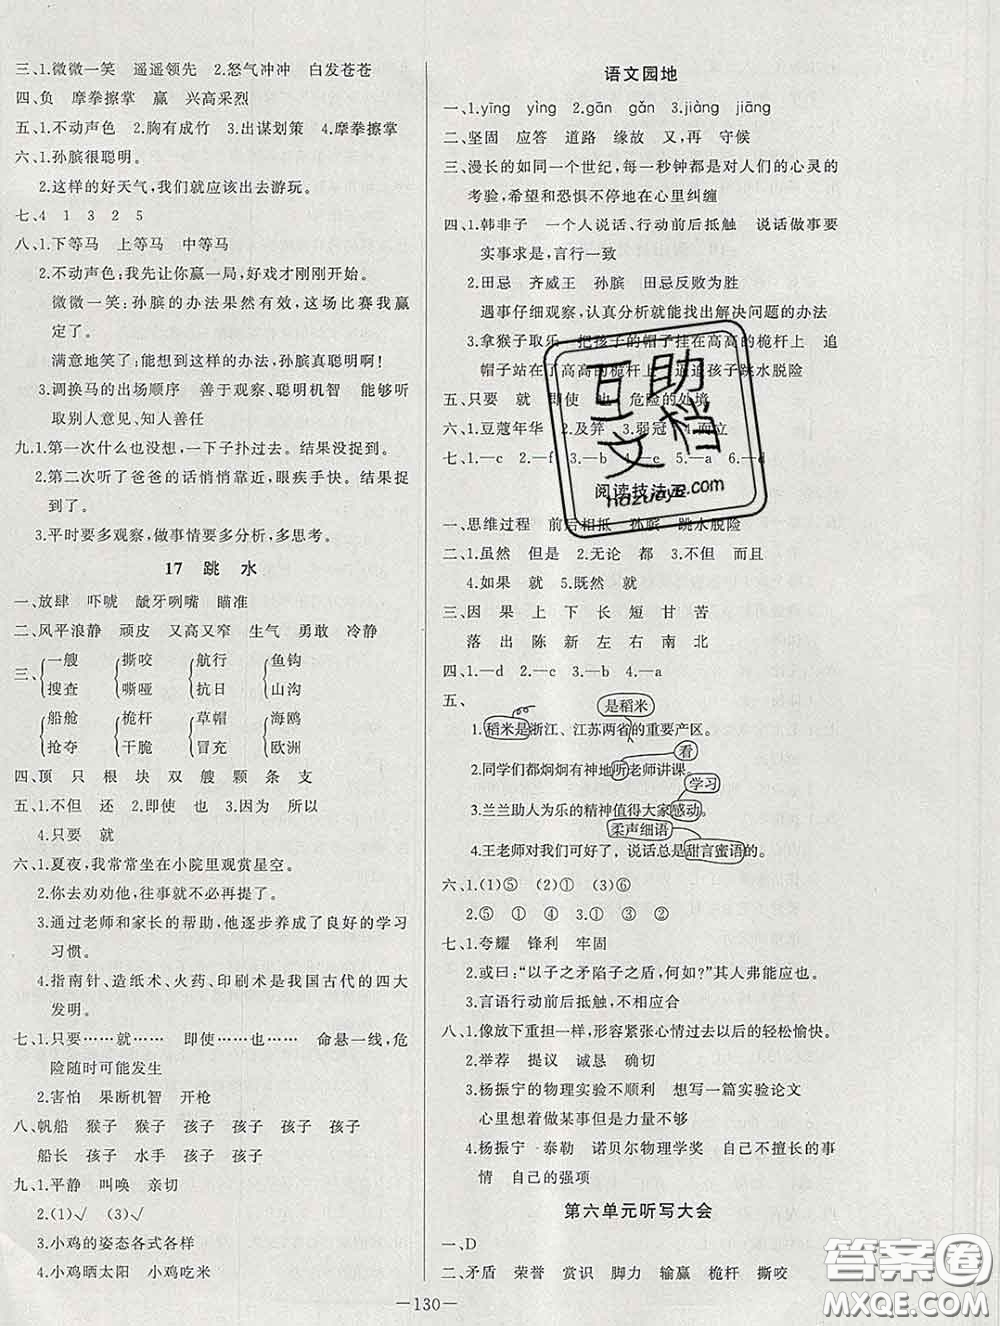 三、1.微微一笑 遥遥领先 2.怒气冲冲 白发苍苍
四、负 摩拳擦掌 赢 兴高采烈
五、1.不动声色 2.胸有成竹 3.出谋划策 4.摩拳擦掌
六、1.孙膑很聪明。
2.这样的好天气,我们就应该出去游玩。
七、4 1 3 2 5
八、1.下等马 上等马 中等马
2.不动声色:我先让你赢一局,好戏才刚刚开始。
微微一笑:孙膑的办法果然有效,这场比赛我赢
定了。
满意地笑了:能想到这样的办法,孙膑真聪明啊!
3.调换马的出场顺序 善于观察、聪明机智 能够听
取别人意见、知人善任
九、1.第一次什么也没想,一下子扑过去。结果没抓到。
2.第二次听了爸爸的话悄悄靠近,眼疾手快。结果捉
到了。
3.平时要多观察,做事情要多分析、多思考。
17 跳 水
一、放肆 吓唬 龇牙咧嘴 瞄准
二、风平浪静 顽皮 又高又窄 生气 勇敢 冷静
三、一艘 撕咬 航行 鱼钩
搜查 嘶哑 抗日 山沟
船舱 桅杆 草帽 海鸥
抢夺 干脆 冒充 欧洲
四、顶 只 根 块 双 艘 颗 条 支
五、1.不但 还 2.即使 也 3.因为 所以
4.只要 就
六、1.夏夜,我常常坐在小院里观赏星空。
2.你去劝劝他,往事就不必再提了。
3.通过老师和家长的帮助,他逐步养成了良好的学习
习惯。
4.指南针、造纸术、火药、印刷术是我国古代的四大
发明。
七、1.只要……就…… 即使……也…… 命悬一线,危
险随时可能发生
2.害怕 果断机智 开枪
八、帆船 猴子 猴子 孩子 孩子 孩子 孩子
船长 孩子 水手 孩子 孩子
九、1.平静 叫唤 亲切
2.(1)√ (3)√
3.小鸡的姿态各式各样
4.小鸡晒太阳 小鸡吃米
语文园地
一、1.yīng yìng 2.gān gǎn 3.jiàng jiāng
二、坚固 应答 道路 缘故 又,再 守候
三、漫长的如同一个世纪,每一秒钟都是对人们的心灵的
考验,希望和恐惧不停地在心里纠缠
四、1.韩非子 一个人说话、行动前后抵触 说话做事要
实事求是,言行一致
2.田忌 齐威王 孙膑 田忌反败为胜
遇事仔细观察,认真分析就能找出解决问题的办法
3.拿猴子取乐 把孩子的帽子挂在高高的桅杆上 追
帽子站在了高高的桅杆上 逼迫孩子跳水脱险
五、只要 就 即使 也 危险的处境
六、1.豆蔻年华 2.及笄 3.弱冠 4.而立
七、1.—c 2.—f 3.—b 4.—e 5.—a 6.—d
阅读技法五
一、思维过程 前后相抵 孙膑 跳水脱险
二、1.虽然 但是 2.无论 都 3.不但 而且
4.如果 就 5.既然 就
三、因 果 上 下 长 短 甘 苦
落 出 陈 新 左 右 南 北
四、1.—d 2.—c 3.—b 4.—a
五、
是稻米
1.稻米是浙江、江苏两省的重要产区。
看
2.同学们都炯炯有神地听老师讲课。
学习
3.兰兰助人为乐的精神值得大家感动。
柔声细语
4.王老师对我们可好了,说话总是甜言蜜语的。
六、1.(1)⑤ (2)① (3)⑥
2.⑤ ① ② 3.① ② ④
七、1.夸耀 锋利 牢固
2.或曰:“以子之矛陷子之盾,何如?”其人弗能应也。
3.言语行动前后抵触,不相应合
八、1.像放下重担一样,形容紧张心情过去以后的轻松愉快。
2.举荐 提议 诚恳 确切
3.杨振宁的物理实验不顺利 想写一篇实验论文
心里想着做某事但是力量不够
4.杨振宁·泰勒 诺贝尔物理学奖 自己不擅长的事
情 自己的强项
第六单元听写大会
一、D
二、矛盾 荣誉 赏识 脚力 输赢 桅杆 撕咬
—130—
互助文档
hdzuoye.com
答案圈
MXQE.COM